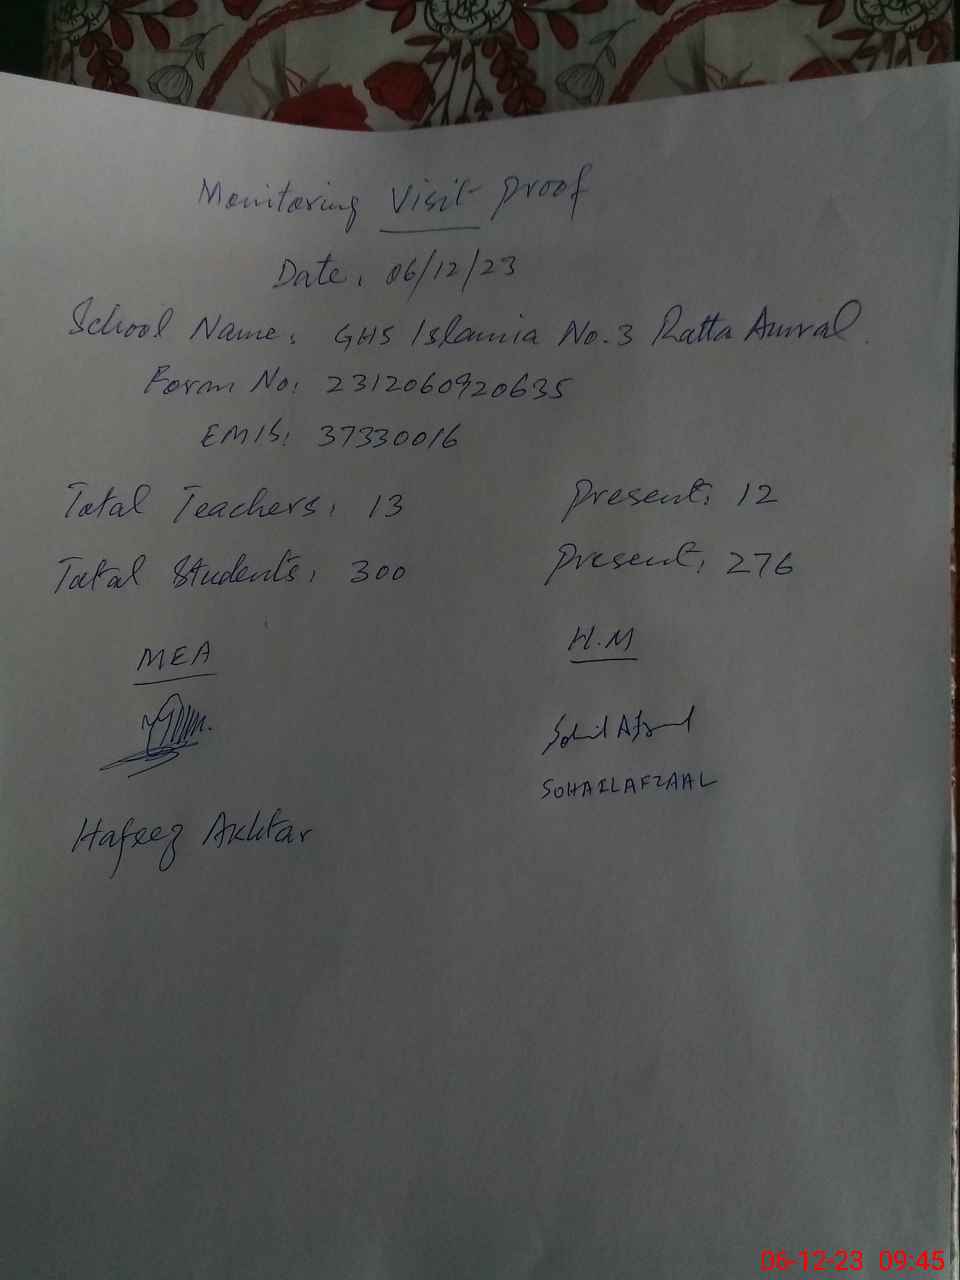 Monitoring Visit Proof
Date: 06/12/23
School Name: GHS Islamia No.3 Ratta Amral.
Form No: 2312060920635
EMIS: 37330016
Total Teachers: 13 Present: 12
Total Students: 300 Present: 276
MEA H.M
Sohail Afzaal
SOHAILAFZAAL
Hafeez Akhtar
06-12-23 09:45